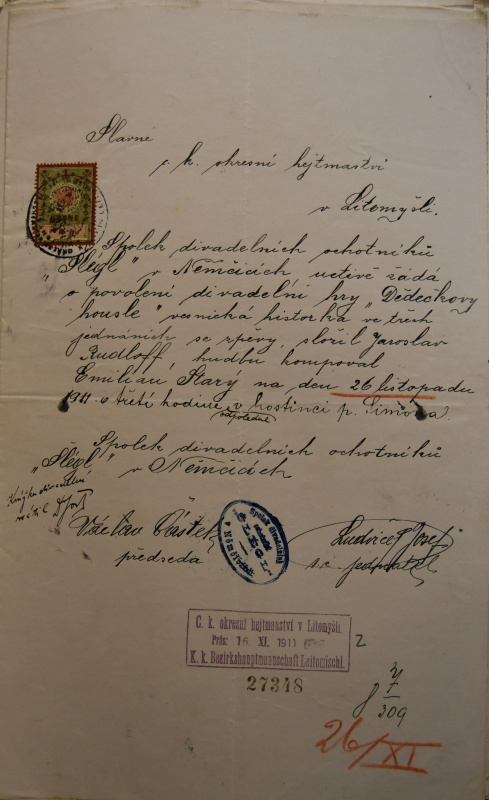 Slavné
c. k. okresní hejtmaství
v Litomyšli.
Spolek divadelních ochotníků
„Šlégl" v Němčicích uctivě žádá
o povolení divadelní hry „Dědečkovy
housle" vesnická historka ve třech
jednáních se zpěvy, složil Jaroslav
Rudloff, hudbu komponoval
Emilian Starý na den 26 listopadu
1911 o třetí hodině v hostinci p. Šimona.
odpoledne
Spolek divadelních ochotníků
„Šlégl" v Němčicích
Knížku divadelní
Václav Částek
předseda
Ludvíček Josef
jednatel
Spolek divadelní
C. k. okresní hejtmanství v Litomyšli.
Präs: 16. XI. 1911
K. k. Bezirkshauptmannschaft Leitomischl.
27348
2
309
26/XI